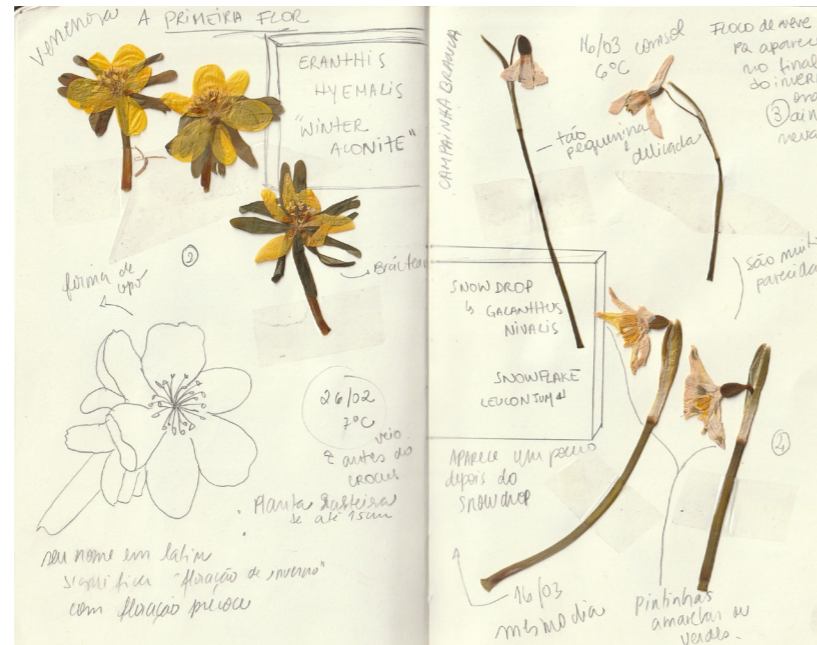 venenosa
A PRIMEIRA FLOR
ERANTHIS
HYEMALIS
"WINTER
ACONITE"
2
Brácteas
forma de
26/02
7°C
veio
antes do
CROCUS
Planta Rasteira
até 15cm
seu nome em latim
significa "floração de inverno"
com floração precoce
CAMPAINHA BRANCA
16/03 com sol
6°C
FLOCO de neve
aparece
no final
do inverno
3
ainda
neva
tão
pequenina e
delicada
são muito
parecidas
SNOWDROP
↳ GALANTHUS
NIVALIS
SNOWFLAKE
LEUCONJUM
4
APARECE um pouco
depois do
SNOWDROP
16/03
mesmo dia
Pintinhas
amarelas ou
verdes.